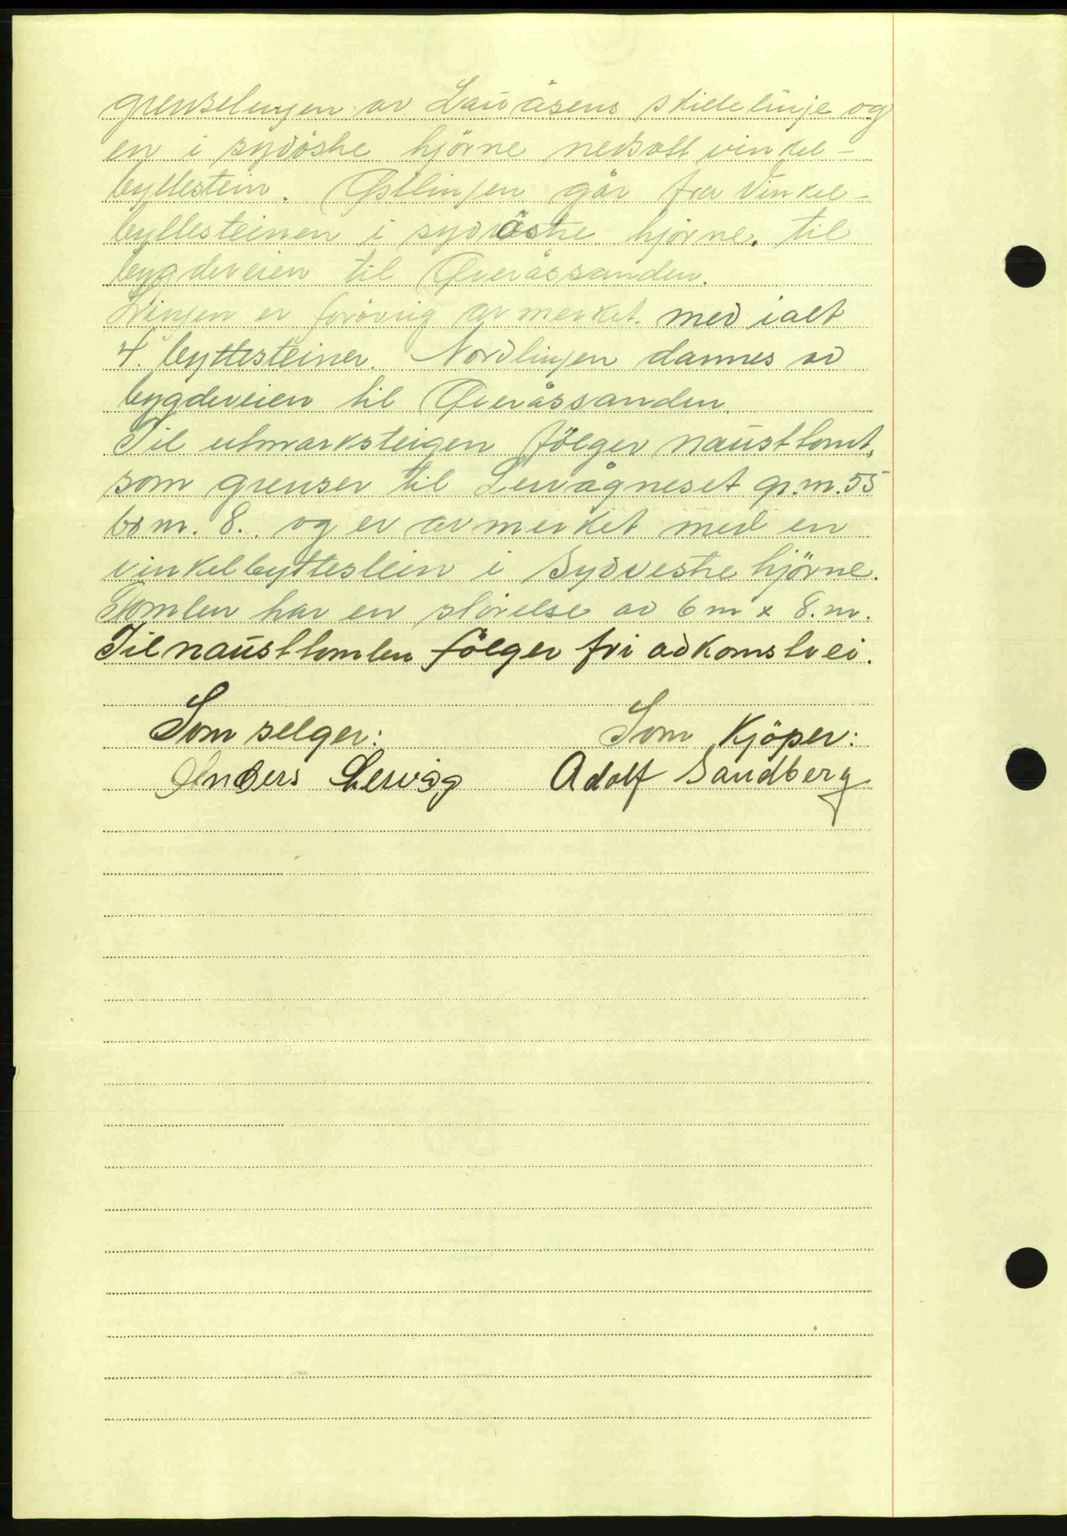 grenselinjen av Lauvåsens skidelinje og
en i sydöstre hjörne nedsatt vinkel-
byttestein. Østlinjen går fra vinkel-
byttesteinen i sydöstre hjörne. til
bygdeveien til Qveråssanden.
Linjen er forövrig avmerket med ialt
4. byttesteiner. Nordlinjen dannes av
bygdeveien til Qveråssanden.
Til utmarksteigen fölger nausttomt,
som grenser til Lervågneset gr.m. 55
br m. 8. og er avmerket med en
vinkelbyttestein i Sydvestre hjörne.
Tomten har en störelse av 6 m x 8. m.
Til nausttomten fölger fri adkomstvei.
Som selger: Som Kjöper:
Anders Lervåg Adolf Sandberg